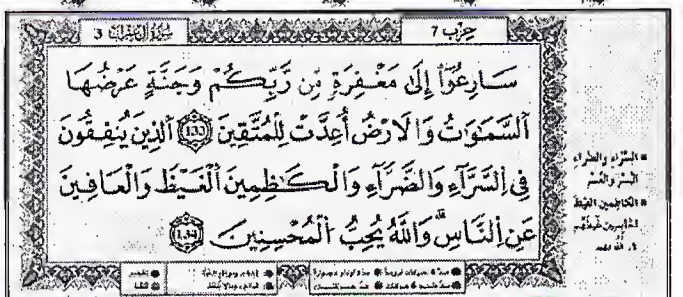 سُورَةُ آلِ عِمْرَانَ 3
حِزْب 7
سَارِعُوٓاْ إِلَىٰ مَغْفِرَةٍ مِّن رَّبِّكُمْ وَجَنَّةٍ عَرْضُهَا
اَلسَّمَٰوَٰتُ وَالَارْضُ أُعِدَّتْ لِلْمُتَّقِينَ 133 اَلذِينَ يُنفِقُونَ
فِے اِلسَّرَّآءِ وَالضَّرَّآءِ وَالْكَٰظِمِينَ اَلْغَيْظَ وَالْعَافِينَ
عَنِ اِلنَّاسِ وَاللَّهُ يُحِبُّ اُلْمُحْسِنِينَ 134
السَّرَّاءِ والضَّرَّاءِ
اليُسْرِ والعُسْرِ
الكَاظِمِينَ الغَيْظَ